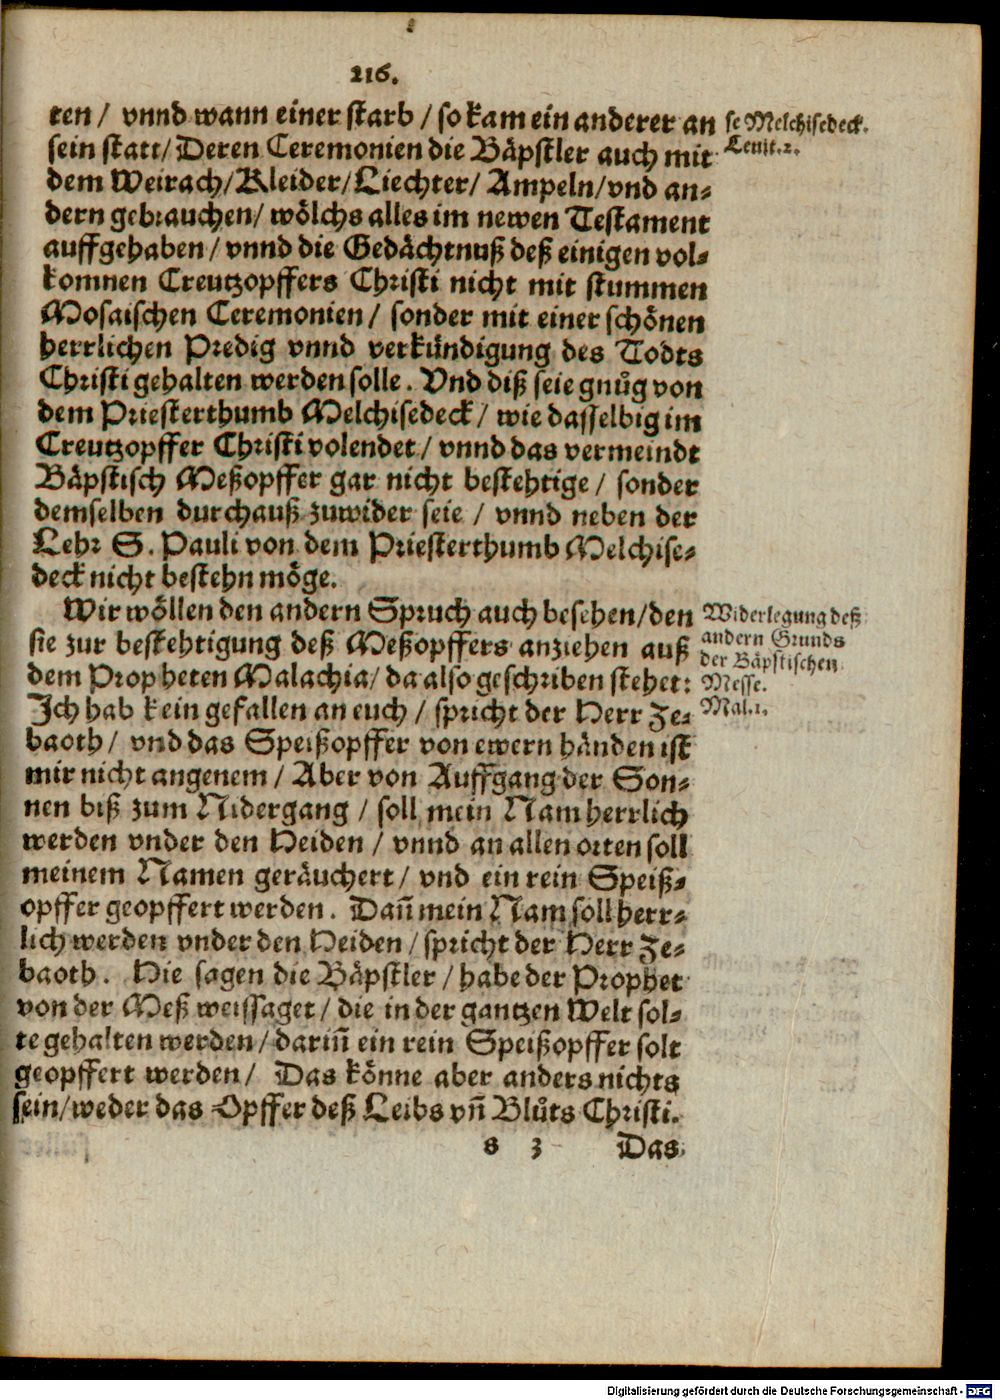 216.
ten / vnnd wann einer starb / so kam ein anderer an
sein statt / Deren Ceremonien die Bäpstler auch mit
dem Weirach / Kleider / Liechter / Ampeln / vnd an⸗
dern gebrauchen / wölchs alles im newen Testament
auffgehaben / vnnd die Gedächtnuß deß einigen vol⸗
komnen Creutzopffers Christi nicht mit stummen
Mosaischen Ceremonien / sonder mit einer schönen
herrlichen Predig vnnd verkündigung des Todts
Christi gehalten werden solle. Vnd diß seie gnůg von
dem Priesterthumb Melchisedeck / wie dasselbig im
Creutzopffer Christi volendet / vnnd das vermeindt
Bäpstisch Meßopffer gar nicht bestehtige / sonder
demselben durchauß zuwider seie / vnnd neben der
Lehr S. Pauli von dem Priesterthumb Melchise⸗
deck nicht bestehn möge.
se Melchisedeck.
Leuit.2.
Wir wöllen den andern Spruch auch besehen / den
sie zur bestehtigung deß Meßopffers anziehen auß
dem Propheten Malachia / da also geschriben stehet:
Ich hab kein gefallen an euch / spricht der Herr Ze⸗
baoth / vnd das Speißopffer von ewern händen ist
mir nicht angenem / Aber von Auffgang der Son⸗
nen biß zum Nidergang / soll mein Nam herrlich
werden vnder den Heiden / vnnd an allen orten soll
meinem Namen geräuchert / vnd ein rein Speiß⸗
opffer geopffert werden. Dañ mein Nam soll herr⸗
lich werden vnder den Heiden / spricht der Herr Ze⸗
baoth. Hie sagen die Bäpstler / habe der Prophet
von der Meß weissaget / die in der gantzen Welt sol⸗
te gehalten werden / dariñ ein rein Speißopffer solt
geopffert werden / Das könne aber anders nichts
sein / weder das Opffer deß Leibs vñ Blůts Christi.
Widerlegung deß
andern Grunds
der Bäpstischen
Messe.
Mal.1.
s 3 Das
Digitalisierung gefördert durch die Deutsche Forschungsgemeinschaft - DFG